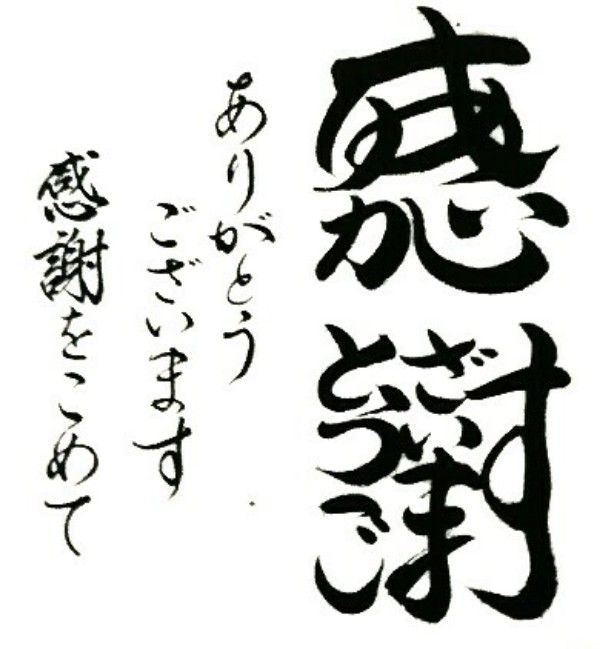 感謝
ありがとう
ございます
感謝をこめて